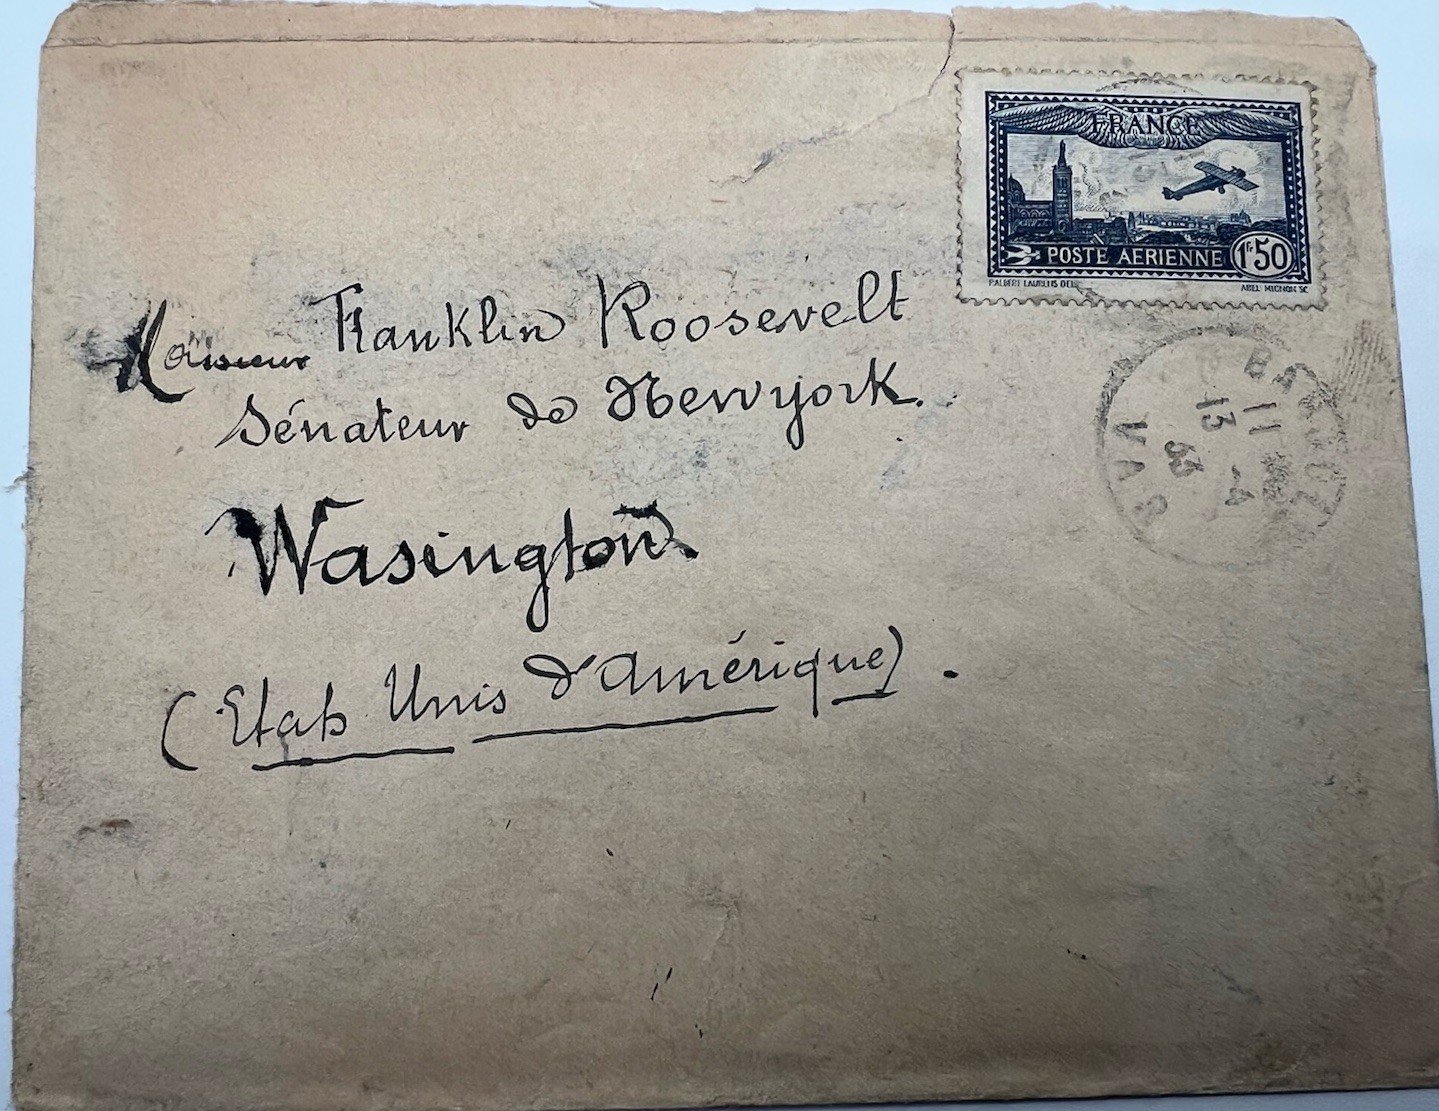 FRANCE
POSTE AÉRIENNE 1F50
P. ALBERT LAURENS DEL. ABEL MIGNON SC
Monsieur Franklin Roosevelt
Sénateur de Newyork.
Wasington.
(Etats Unis d'Amérique).
VAR
13
11 -4
33